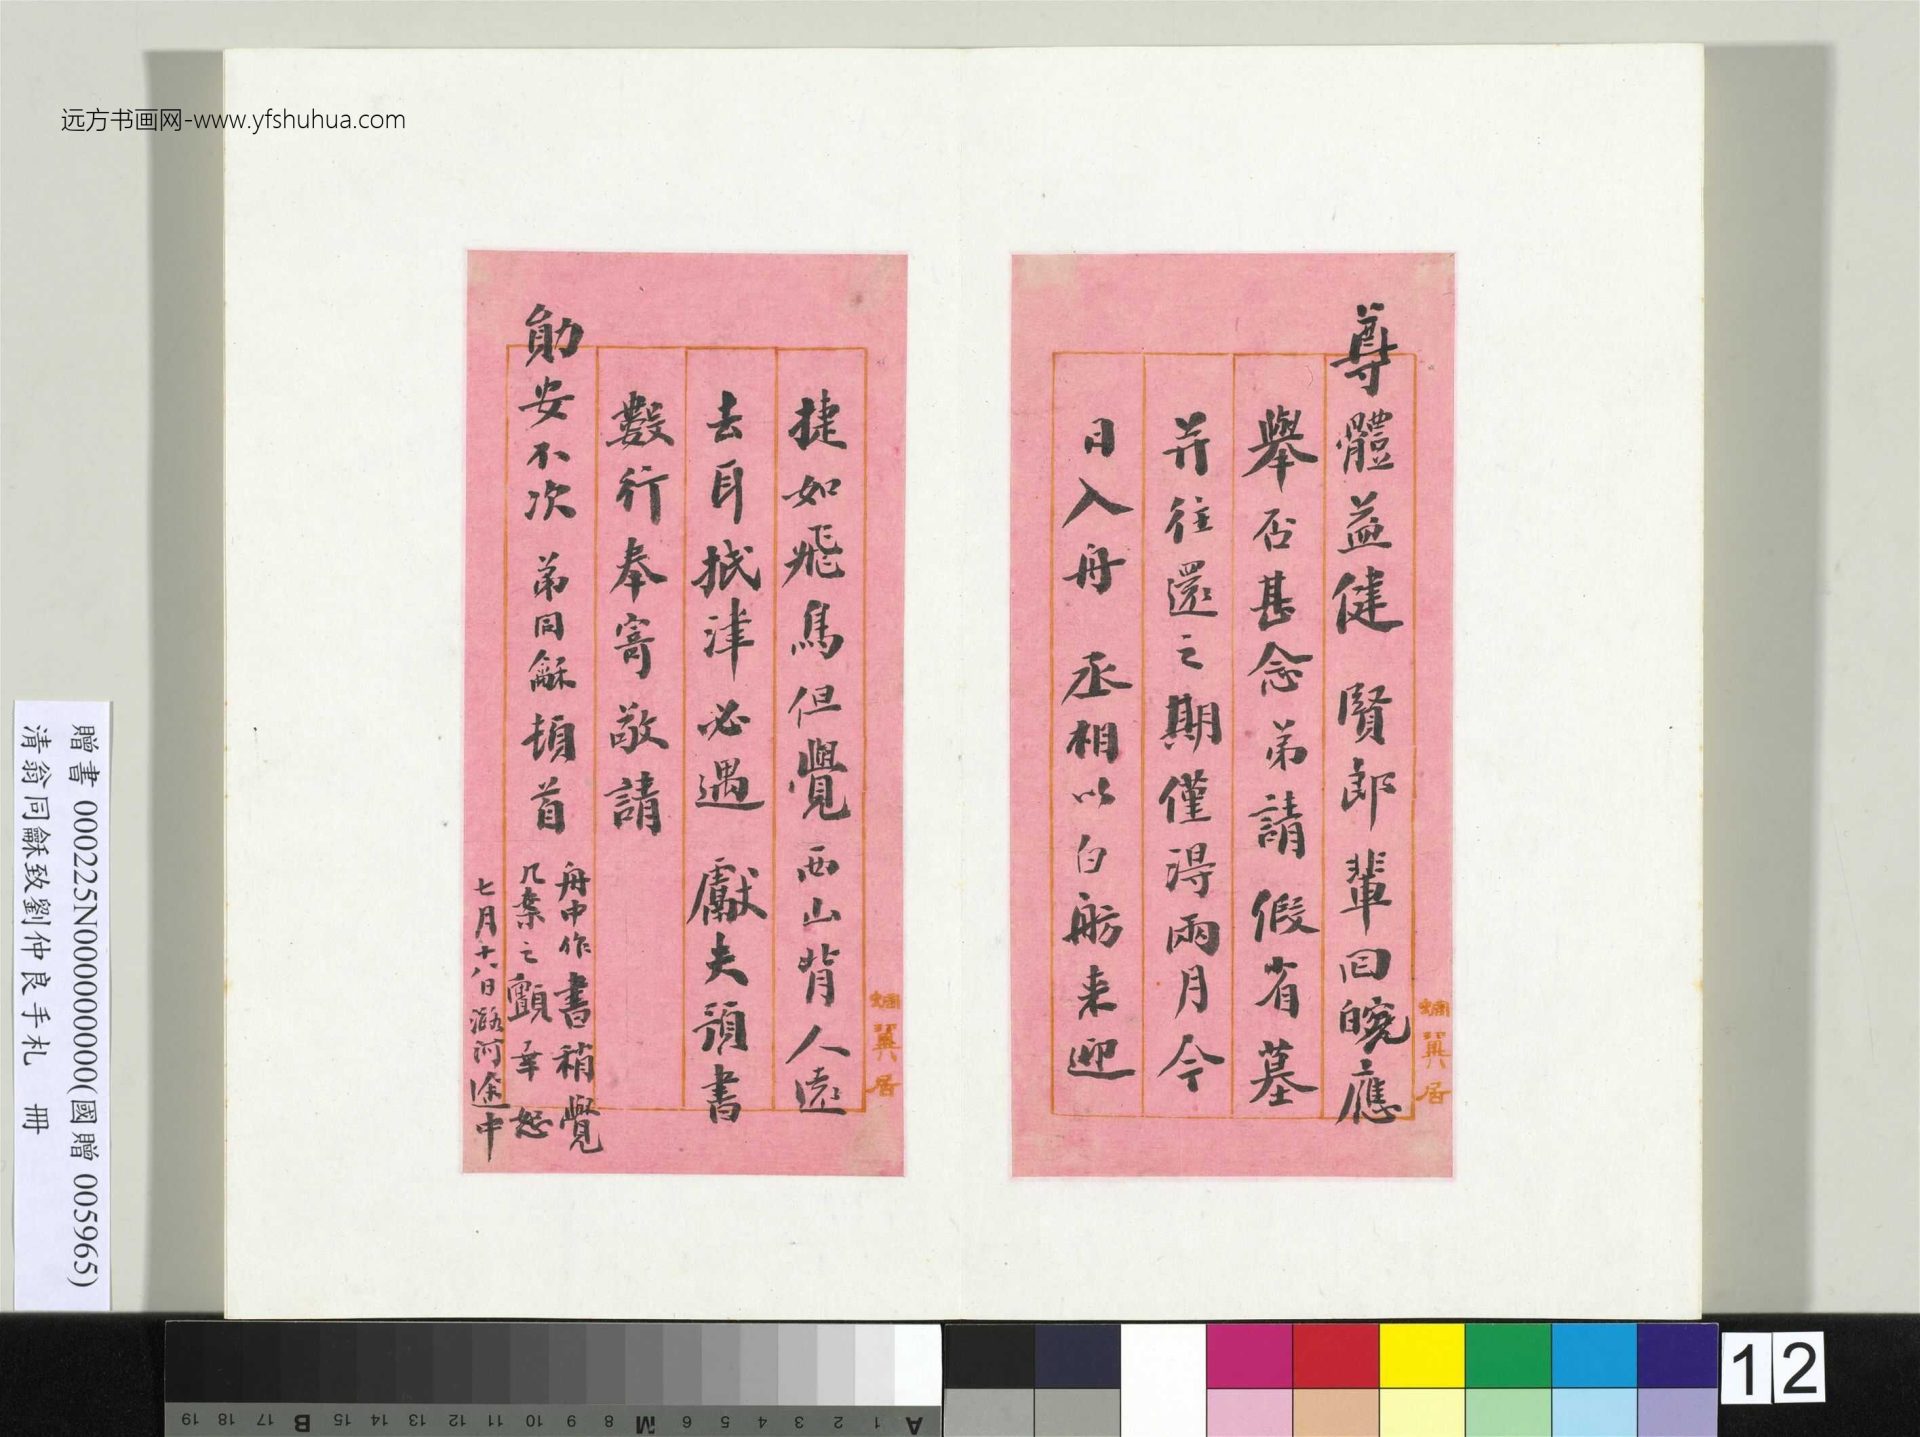 远方书画网-www.yfshuhua.com
尊體益健 賢郎輩回皖應
舉否甚念弟請假省墓
并往還之期僅得兩月今
日入舟 丞相以白舫来迎
蜩翼居
捷如飛鳥但覺西山背人遠
去耳抵津必遇 獻夫預書
數行奉寄敬請
勛安不次 弟同龢頓首
舟中作書稍覺
几案之顫幸恕
七月十八日潞河途中
蜩翼居
贈書 000225N000000000(國贈 005965)
清翁同龢致劉仲良手札 冊
A 1 2 3 4 5 6 M 8 9 10 11 12 13 14 15 B 17 18 19
12